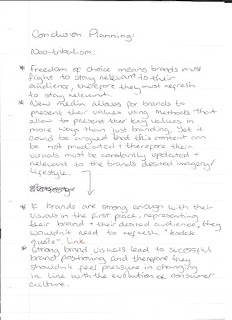 Conclusion Planning:
Neo-tribalism:
* Freedom of choice means brands must
fight to stay relevant to their
audience, therefore they must refresh
to stay relevant.
* New media allows for brands to
present their values using methods that
allow to present their key values in
more ways than just branding. Yet it
could be argued that this content can
be not mediated & therefore their
visuals must be constantly updated &
relevant to the brands desired imagery/
lifestyle.
* If brands are strong enough with their
visuals in the first place, representing
their brand & their desired audience, they
wouldn't need to refresh "kodak
quote" link.
* Strong brand visuals lead to successful
brand positioning and therefore they
shouldn't feel pressure in changing
in line with the evolution of consumer
culture.